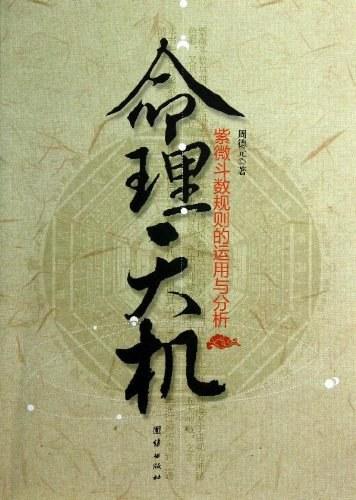 命理天机
紫微斗数规则的运用与分析
周德元◎著
团结出版社